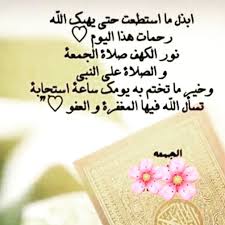 ابذل ما استطعت حتى يهبك الله
رحمات هذا اليوم ♡
نور الكهف صلاة الجمعة
و الصلاة على النبي
وخير ما تختم به يومك ساعة استجابة
تسأل الله فيها المغفرة و العفو ♡"
الجمعه